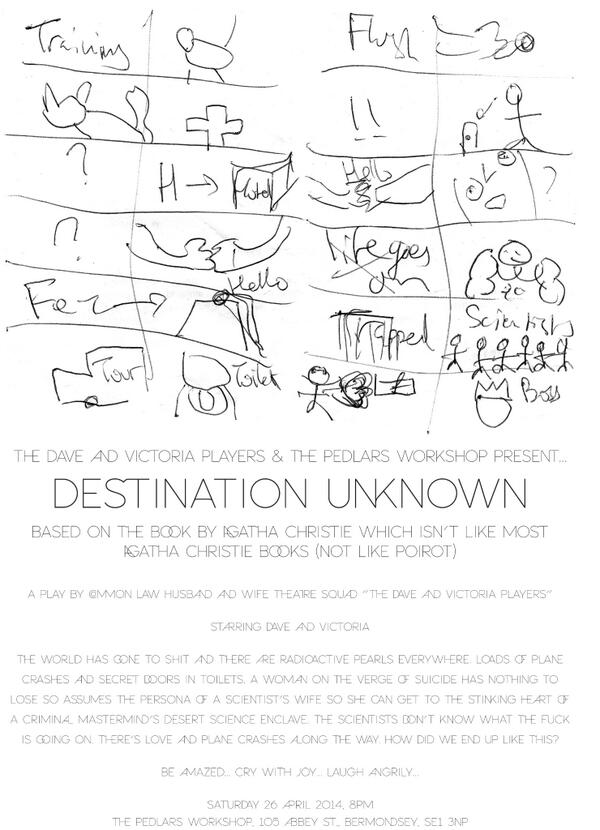 Training
Flush
!!
?
H → Hotel
Hello
?
Life goes on
Hello
Fez
Trapped
Scientists
Tour
Toilet
Boss
THE DAVE AND VICTORIA PLAYERS & THE PEDLARS WORKSHOP PRESENT...
DESTINATION UNKNOWN
BASED ON THE BOOK BY AGATHA CHRISTIE WHICH ISN'T LIKE MOST
AGATHA CHRISTIE BOOKS (NOT LIKE POIROT)
A PLAY BY COMMON LAW HUSBAND AND WIFE THEATRE SQUAD "THE DAVE AND VICTORIA PLAYERS"
STARRING DAVE AND VICTORIA
THE WORLD HAS GONE TO SHIT AND THERE ARE RADIOACTIVE PEARLS EVERYWHERE. LOADS OF PLANE
CRASHES AND SECRET DOORS IN TOILETS. A WOMAN ON THE VERGE OF SUICIDE HAS NOTHING TO
LOSE SO ASSUMES THE PERSONA OF A SCIENTIST'S WIFE SO SHE CAN GET TO THE STINKING HEART OF
A CRIMINAL MASTERMIND'S DESERT SCIENCE ENCLAVE. THE SCIENTISTS DON'T KNOW WHAT THE FUCK
IS GOING ON. THERE'S LOVE AND PLANE CRASHES ALONG THE WAY. HOW DID WE END UP LIKE THIS?
BE AMAZED... CRY WITH JOY... LAUGH ANGRILY...
SATURDAY 26 APRIL 2014, 8PM
THE PEDLARS WORKSHOP, 105 ABBEY ST., BERMONDSEY, SE1 3NP